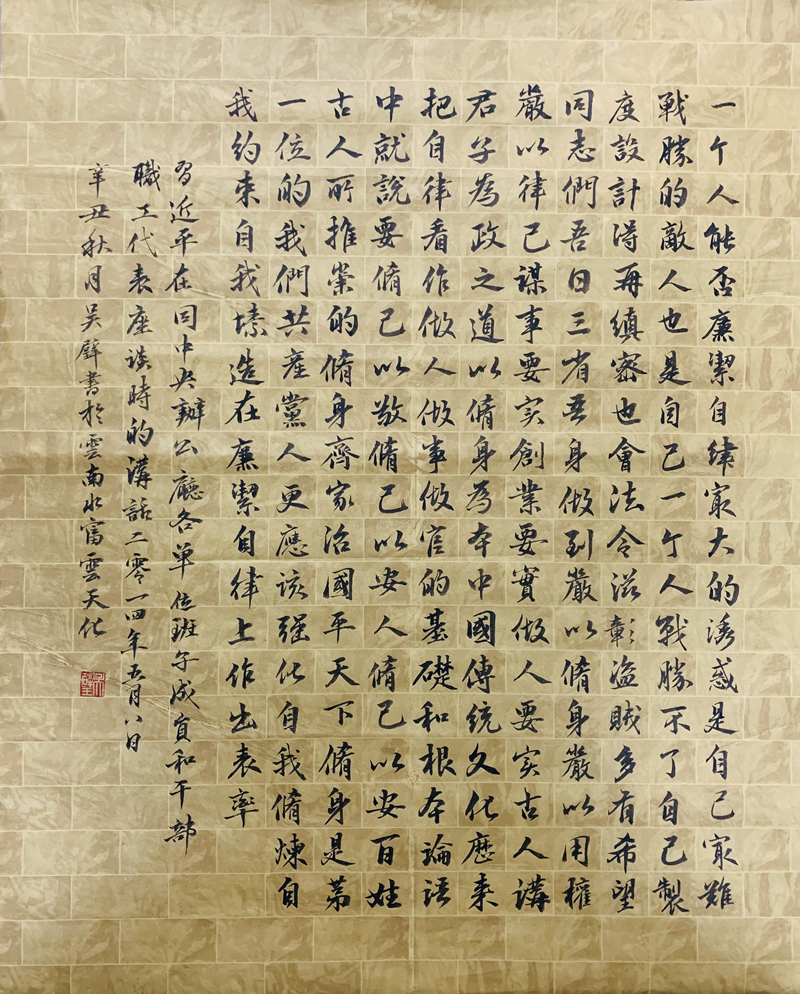 一个人能否廉潔自律冣大的誘惑是自己冣難
戰勝的敵人也是自己一个人戰勝不了自己製
度設計得再縝密也會法令滋彰盜賊多有希望
同志們吾日三省吾身做到嚴以脩身嚴以用權
嚴以律己謀事要实創業要實做人要实古人講
君子為政之道以脩身為本中國傳統文化歷来
把自律看作做人做事做官的基礎和根本論語
中就說要脩己以敬脩己以安人脩己以安百姓
古人所推崇的脩身齊家治國平天下脩身是第
一位的我們共產黨人更應該强化自我脩煉自
我約束自我塑造在廉潔自律上作出表率
習近平在同中央辦公廳各單位班子成員和干部
職工代表座談時的講話二零一四年五月八日
辛丑秋月吴壁書於雲南水富雲天化